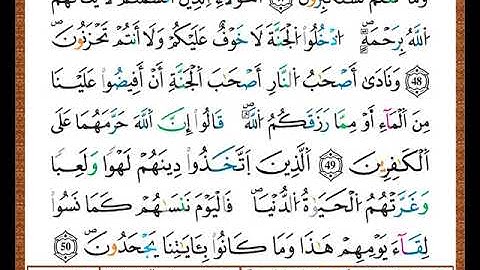 تَسْتَكْبِرُونَ أَهَٰٓؤُلَآءِ ٱلَّذِينَ أَقْسَمْتُمْ لَا يَنَالُهُمُ
ٱللَّهُ بِرَحْمَةٍ ٱدْخُلُوا۟ ٱلْجَنَّةَ لَا خَوْفٌ عَلَيْكُمْ وَلَا أَنتُمْ تَحْزَنُونَ 48
وَنَادَىٰ أَصْحَٰبُ ٱلنَّارِ أَصْحَٰبَ ٱلْجَنَّةِ أَنْ أَفِيضُوا۟ عَلَيْنَا
مِنَ ٱلْمَآءِ أَوْ مِمَّا رَزَقَكُمُ ٱللَّهُ قَالُوٓا۟ إِنَّ ٱللَّهَ حَرَّمَهُمَا عَلَى
ٱلْكَٰفِرِينَ 49 ٱلَّذِينَ ٱتَّخَذُوا۟ دِينَهُمْ لَهْوًا وَلَعِبًا
وَغَرَّتْهُمُ ٱلْحَيَوٰةُ ٱلدُّنْيَا فَٱلْيَوْمَ نَنسَىٰهُمْ كَمَا نَسُوا۟
لِقَآءَ يَوْمِهِمْ هَٰذَا وَمَا كَانُوا۟ بِـَٔايَٰتِنَا يَجْحَدُونَ 50